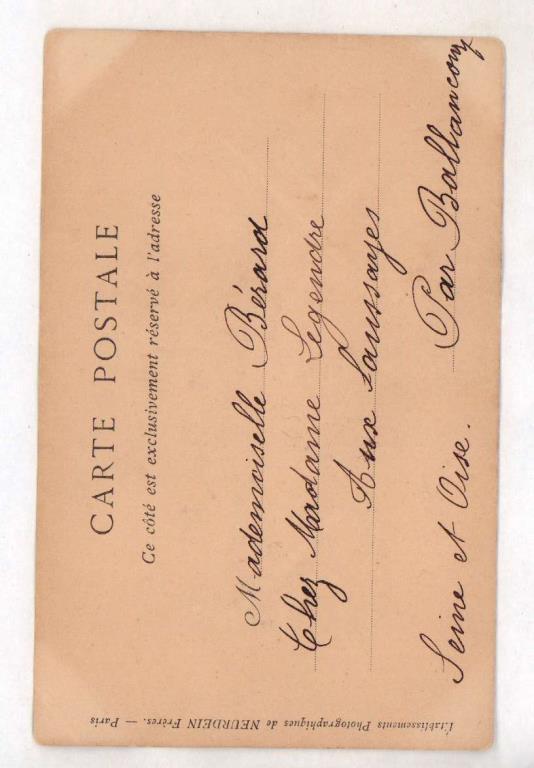 CARTE POSTALE
Ce côté est exclusivement réservé à l'adresse
Mademoiselle Bérard
Chez Madame Legendre
Aux Saussayes
Par Ballancourt
Seine et Oise.
Établissements Photographiques de NEURDEIN Frères. — Paris